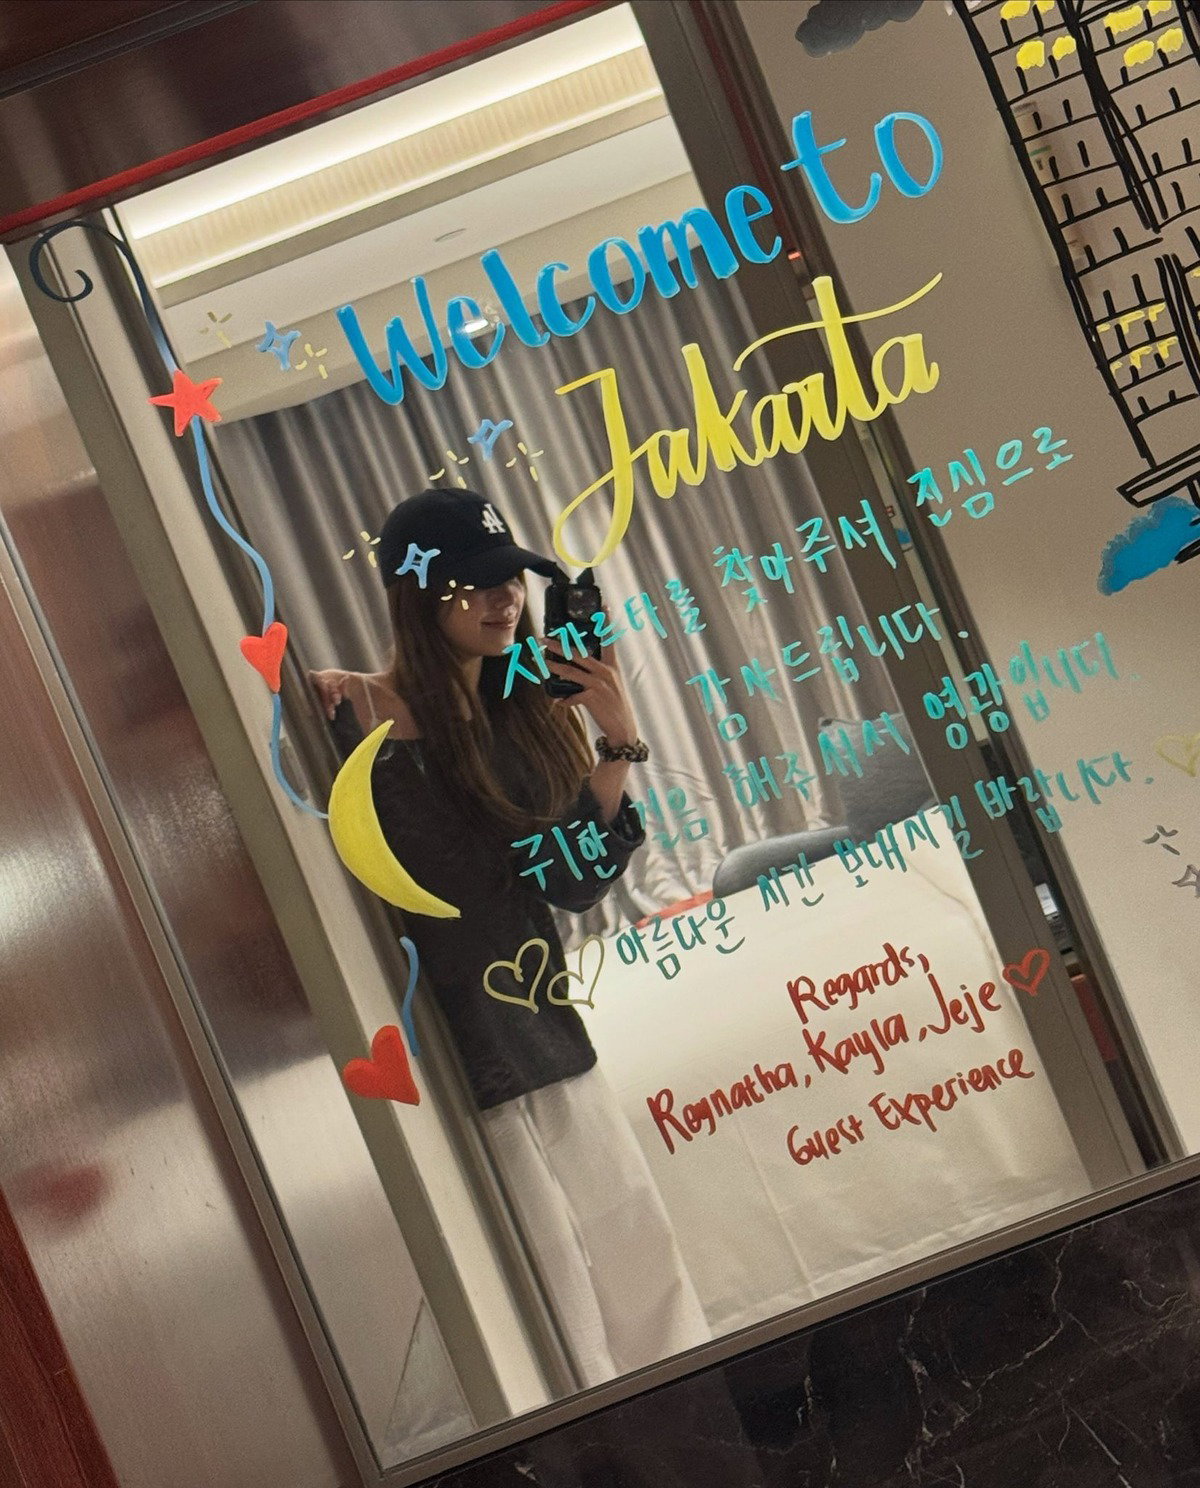 Welcome to
Jakarta
자카르타를 찾아주셔 진심으로
감사드립니다.
귀한 걸음 해주셔서 영광입니다.
아름다운 시간 보내시길 바랍니다.
Regards,
Regnatha, Kayla, Jeje
Guest Experience
LA